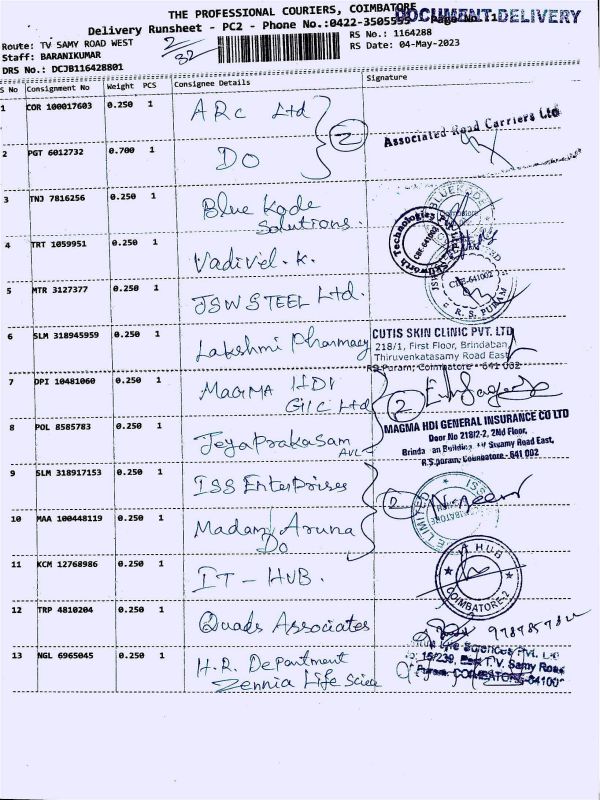 THE PROFESSIONAL COURIERS, COIMBATORE
DOCUMENT DELIVERY
Delivery Runsheet - PC2 - Phone No.:0422-3505555 Page No.
Route: TV SAMY ROAD WEST
RS No.: 1164288
Staff: BARANIKUMAR
RS Date: 04-May-2023
DRS No.: DCJB116428801
2/32
S No Consignment No Weight PCS Consignee Details Signature
1 COR 100017603 0.250 1 ARC Ltd
2 PGT 6012732 0.700 1 DO
2
Associated Road Carriers Ltd
3 TNJ 7816256 0.250 1 Blue Kode
Solutions.
4 TRT 1059951 0.250 1 Vadivel. K.
5 MTR 3127377 0.250 1 JSW STEEL Ltd.
CBE-641002
R.S. PURAM
6 SLM 318945959 0.250 1 Lakshmi Pharmacy
CUTIS SKIN CLINIC PVT. LTD
218/1, First Floor, Brindaban
Thiruvenkatasamy Road East
RS Puram, Coimbatore - 641 002
7 DPI 10481060 0.250 1 MAGMA HDI
GIC Ltd
2
8 POL 8585783 0.250 1 Jeyaprakasam
MAGMA HDI GENERAL INSURANCE CO LTD
Door No 218/2-2, 2Nd Floor,
Swamy Road East,
R.S.puram, Coimbatore - 641 002
9 SLM 318917153 0.250 1 ISS Enterprises
2
10 MAA 100448119 0.250 1 Madam Aruna
Do
11 KCM 12768986 0.250 1 IT - HUB.
I.T. HUB
COIMBATORE-2
12 TRP 4810204 0.250 1 Quads Associates
13 NGL 6965045 0.250 1 H.R. Department
Zennia Life Scien
Life Sciences Pvt. Ltd
15/239, East T.V. Samy Road
Puram, COIMBATORE-64100